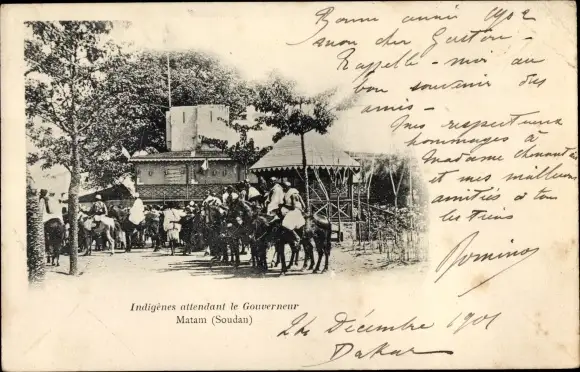 Bonne année 1902
mon cher Gaston -
Rappelle - moi au
bon souvenir des
amis -
Mes respectueux
hommages à
Madame
et mes meilleures
amitiés à tous
les tiens
Domino
Indigènes attendant le Gouverneur
Matam (Soudan)
24 Décembre 1901
Dakar